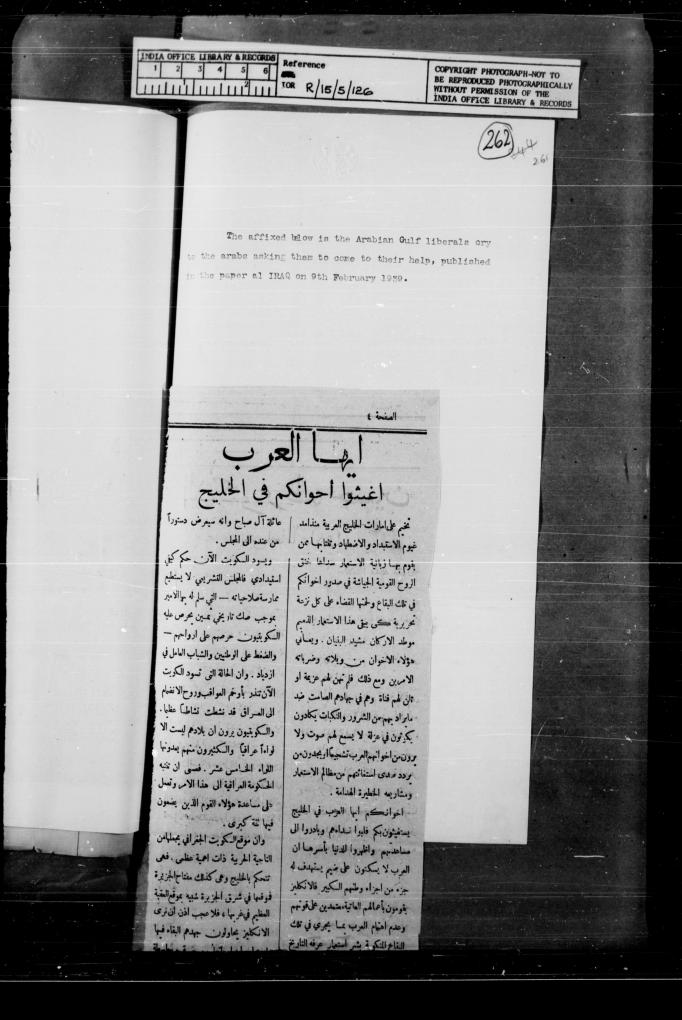 INDIA OFFICE LIBRARY & RECORDS
1 2 3 4 5 6
1 2
Reference
IOR R/15/5/126
COPYRIGHT PHOTOGRAPH-NOT TO
BE REPRODUCED PHOTOGRAPHICALLY
WITHOUT PERMISSION OF THE
INDIA OFFICE LIBRARY & RECORDS
262
261
The affixed below is the Arabian Gulf liberals cry
to the arabs asking them to come to their help, published
in the paper al IRAQ on 9th February 1939.
الصفحة ٤
ايها العرب
اغيثوا أخوانكم في الخليج
تخيم على امارات الخليج العربية منذ امد
غيوم الاستبداد والاضطهاد وتفتابها محن
يقوم بها زبانية الاستعمار سداها خنق
الروح القومية الجياشة في صدور اخوانكم
في تلك البقاع ولحمتها القضاء على كل نزعة
تحريرية كي يبقى هذا الاستعمار الذميم
موطد الاركان مشيد البنيان . ويعاني
هؤلاء الاخوان من ويلاته وضرباته
الامرين ومع ذلك فلم تهن لهم عزيمة او
تلن لهم قناة وهم في جهادهم الصامت ضد
مايراد بهم من الشرور والنكبات يكادون
يكونون في عزلة لا يسمع لهم صوت ولا
يرون من اخوانهم العرب تشجيعا او يجدون من
يردد صدى استغاثتهم من مظالم الاستعمار
ومشاريعه الخطيرة الهدامة .
اخوانكم ايها العرب في الخليج
يستغيثون بكم فلبوا نداءهم وبادروا الى
مساعدتهم واظهروا للدنيا بأسرها ان
العرب لا يسكتون على ضيم يستهدف له
جزء من اجزاء وطنهم الكبير فالانكليز
يقومون بأعمالهم العاتية معتمدين على قوتهم
وعدم اهتمام العرب بما يجري في تلك
البقاع المنكوبة بشر استعمار عرفه التاريخ
عائلة آل صباح وانه سيعرض دستوراً
من عنده الى المجلس .
ويسود الكويت الآن حكم كيفي
استبدادي فالمجلس التشريعي لا يستطيع
ممارسة صلاحياته – التي سلم له بها الامير
بموجب صك تاريخي ثمين يحرص عليه
الكويتيون حرصهم على ارواحهم –
والضغط على الوطنيين والشباب العامل في
ازدياد . وان الحالة التى تسود الكويت
الآن تنذر بأوخم العواقب وروح الانضمام
الى العراق قد نشطت نشاطا عظيما .
والكويتيون يرون ان بلادهم ليست الا
لواءاً عراقيا والكثيرون منهم يعدونها
اللواء الخامس عشر . فعسى ان تنتبه
الحكومة العراقية الى هذا الامر وتعمل
على مساعدة هؤلاء القوم الذين يضعون
فيها ثقة كبرى .
وان موقع الكويت الجغرافي يجعلها من
الناحية الحربية ذات اهمية عظمى . فهى
تتحكم بالخليج وهى كذلك مفتاح الجزيرة
فوقعها في شرق الجزيرة شبيه بموقع العقبة
العظيم في غربها ، فلا عجب اذن ان نرى
الانكليز يحاولون جهدهم البقاء فيها